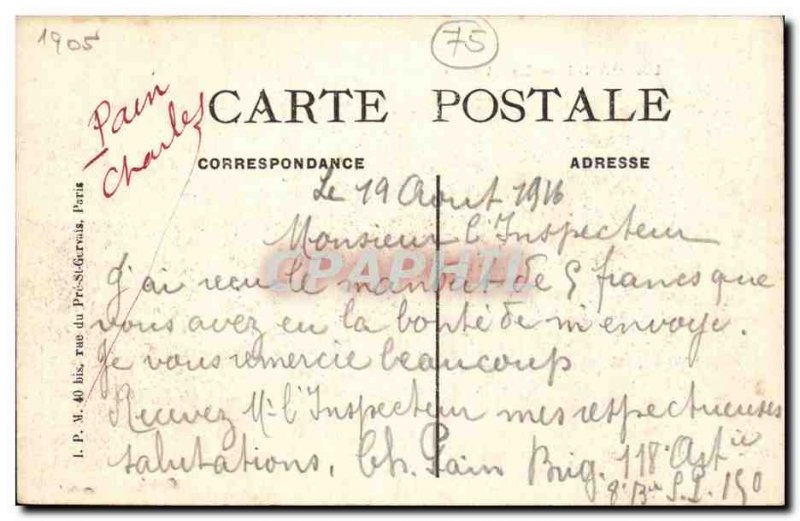 1905
75
Pain
Charles
CARTE POSTALE
CORRESPONDANCE
ADRESSE
I. P. M. 40 bis, rue du Pré-St-Gervais, Paris
Le 19 Aout 1916
Monsieur l'Inspecteur
CPAPHIL
J'ai recu le mandat de 5 francs que
vous avez eu la bonté de m'envoye.
Je vous remercie beaucoup
Recevez Mr l'Inspecteur mes respectueuses
salutations, Ch. Pain Brig. 118e Artie
8e Bie S.P. 150